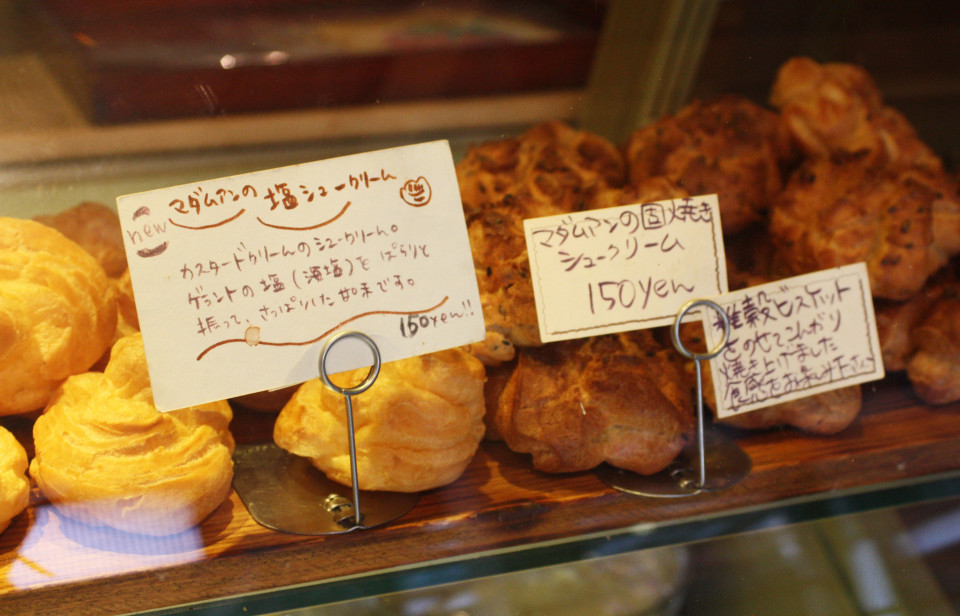 new
マダムアンの 塩シュークリーム
カスタードクリームのシュークリーム。
ゲラントの塩(海塩)を ぱらりと
振って、さっぱりした甘味です。
150yen!!
マダムアンの固焼き
シュークリーム
150yen
雑穀ビスケット
をのせてこんがり
焼き上げました
食感をお楽しみ下さい